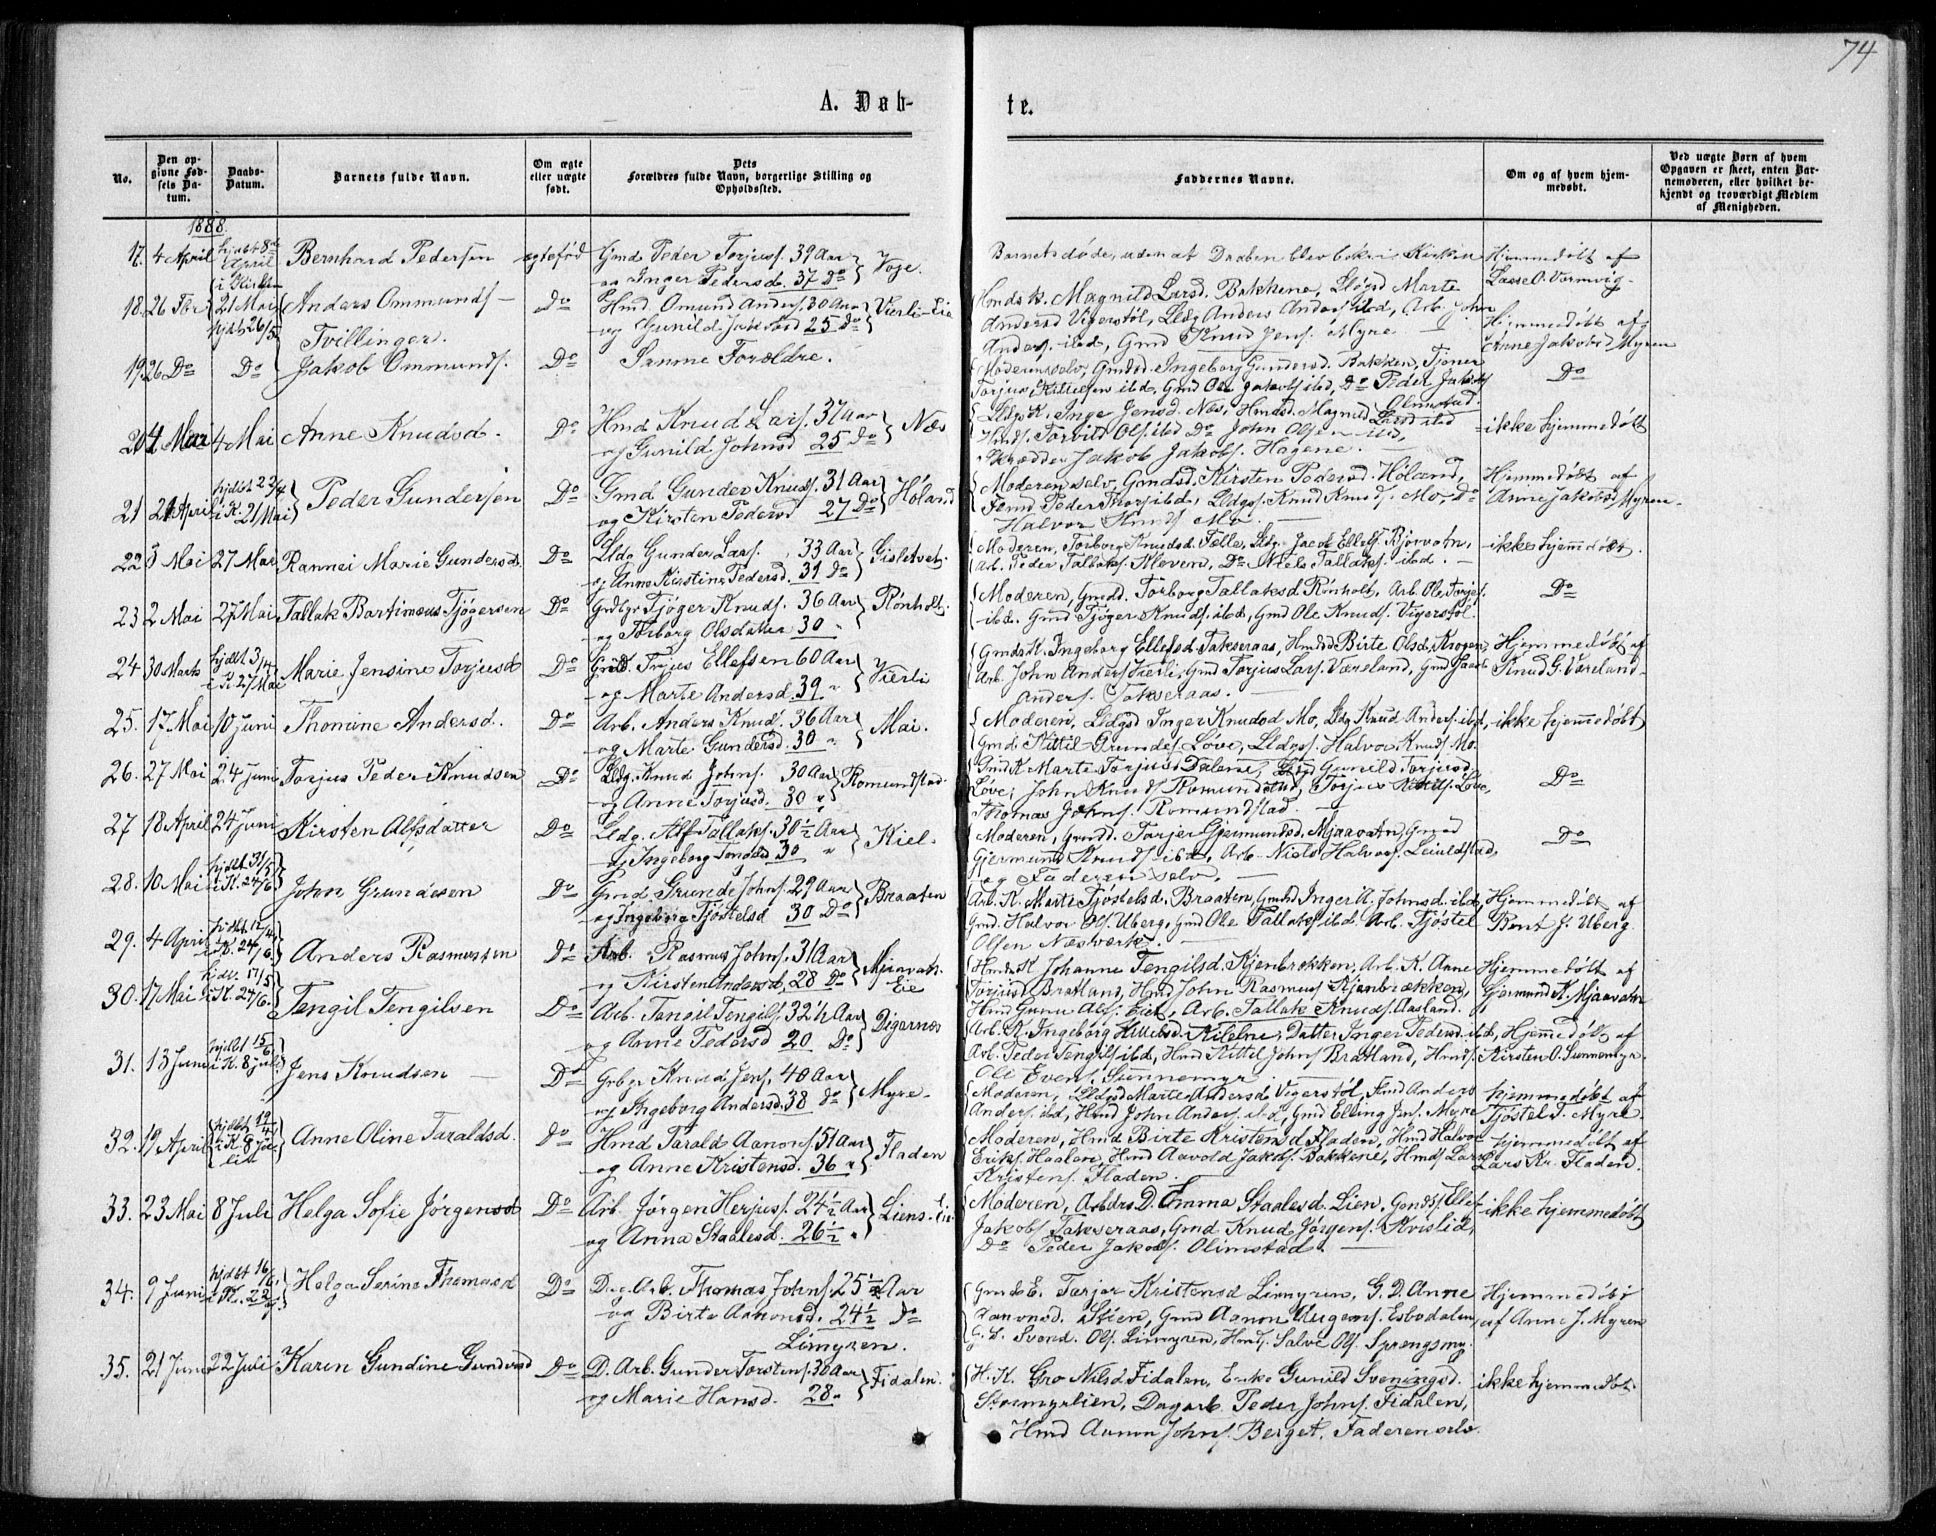 74
A. Døb-
te.
No.
Den op-
givne Fød-
sels Da-
tum.
Daabs-
Datum.
Barnets fulde Navn.
Om ægte
eller uægte
født.
Dets
Forældres fulde Navn, borgerlige Stilling og
Opholdssted.
Faddernes Navne.
Om og af hvem hjem-
medøbt.
Ved uægte Børn af hvem
Opgaven er skeet, enten Bar-
nemoderen, eller hvilket be-
kjendt og troværdigt Medlem
af Menigheden.
1888.
17. 4 April hjdbt 8de April i Kirken Bernhard Pedersen ægtefød Gmd Peder Torjusf. 39 Aar
og Inger Pedersd. 37 Do Voje.
Barnet døde, uden at Daaben blev bekr. i Kirken
Hjemmedøbt af
Lasse O. Vormvig.
18. 26 21 Mai hjdt 26/5 Anders Ommundf Do Hmd Omund Andersf 30 Aar
og Gunild Jakobsd 25 Do Vierli-Eie
Tvillinger.
Hmds K. Magnild Larsd. Bakkene, Marte
Andersd Vigerstøl, Lldg Anders Andersf ibd, Arb. John
Andersf. ibd, Gmd Knud Jensf. Myre
Hjemmedøbt af
Anne Jakobsd Myren
19. 26 Do Do Jakob Ommundf. Do Samme Forældre.
Moderen selv, Gmdsd. Ingeborg Gundersd. Bakken, Tjener
Torjus Kittilsen ibd, Gmd Ole Jakobsf ibd, Do Peder Jakobsf
Olimstad.
Do
20. 4 Mai Anne Knudsd. Do Hmd Knud Larsf. 37 Aar
og Gunild Johnsd 25 Do Næs
Lldgs K. Inge Jensd. Næs, Hmds. Magnild Larsd ibd
Hmdsf. Torvild Olsf. ibd Do John Olsen ibd,
Skrædder Jakob Jakobsf. Hagene.
ikke hjemmedøbt
21 April i K. 21 Mai Peder Gundersen Do Gmd Gunder Knudsf. 31 Aar
og Kirsten Pedersd 27 Do Høland
Moderen selv, Gmdsd. Kirsten Pedersd. Høland,
Peder Thorsf ibd, Lldgs. Knud Knudsf Mo, Do
Halvor Knudsf Mo
Hjemmedøbt af
Anne Jakobsd Myren.
22 3 Mai 27 Mai Rannei Marie Gundersd. Do Lldg Gunder Larsf. 33 Aar
og Anne Kirstine Pedersd. 31 Do Gisletvet.
Moderen, Torborg Knudsd. Felle, Lldg. Jacob Ellefsf. Bjorvatn,
Arb. Peder Tallaksf. Kleven, Do Niels Tallaksf. ibd.
ikke hjemmedøbt.
23 2 Mai 27 Mai Tallak Bartimeus Tjøgersen Do Tjøger Knudsf. 36 Aar
og Torborg Olsdatter 30 " Rønholt.
Moderen, Gmdd. Torborg Tallaksd Rønholt, Arb. Ole Torjesf.
ibd. Gmd Tjøger Knudsf. ibd, Gmd Ole Knudsf. Vigerstøl.
Do
24 30 Marts hjdbt 3/4 i K 27 Mai Marie Jensine Torjusd Do Torjus Ellefsen 60 Aar
og Marte Andersd 39 " Vierli
Gmds K. Ingeborg Ellefsd Takseraas, Hmdsd Birte Olsd. Krogen,
Arb. John Andersf. Vierli, Gmd Torjus Larsf. Væreland,
Andersf. Takseraas.
Hjemmedøbt af
Knud G. Væreland
25. 17 Mai 10 Juni Thomine Andersd. Do Arb. Anders Knudf. 36 Aar
og Marte Gundersd. 30 " Mai.
Moderen, Lldgsd Inger Knudsd Mo, Lldg Knud Andersf. ibd,
Gmd Kittil Grundesf. Løve, Lldgs. Halvor Knudsf Mo.
ikke hjemmedøbt
26. 27 Mai 24 Juni Torjus Peder Knudsen Do Lldg. Knud Johnsf. 30 Aar
og Anne Torjusd. 30 " Romundstad
Gmds K Marte Torjusd Dalene, Gunild Torjusd.
Løve, John Knudsf Romundstad, Torjus Kittilsf. Løve,
Thomas Johnsf. Romundstad.
Do
27 18 April 24 Juni Kirsten Alfsdatter Do Lldg. Alf Tallaksf. 30½ Aar
og Ingeborg 30 " Kiel.
Moderen, Gmdd. Torjer Gjermundsd. Mjaavatn, Gmd
Gjermund Knudsf ibd, Arb. Niels Halvorsf. Leiulfstad,
og Faderen selv.
Do
28. 10 Mai hjdbt 31/5 i K. 24/6. John Grundesen Do Gmd Grunde Johnsf. 29 Aar
og Ingeborg Tjøstelsd 30 Do Braaten
Arb. K. Marte Tjøstelsd. Braaten, Gmdd Inger A. Johnsd. ibd,
Gmd. Halvor Olsf. Uberg, Gmd Ole Tallaksf ibd. Arb. Tjøstel
Olsen Næsverk.
Hjemmedøbt af
Bent J. Uberg.
29. 4 April i K. 24/6. Anders Rasmussen Do Arb. Rasmus Johnsf. 31 Aar
og Kirsten Andersd, 28 Do Mjaavatn-
Eie
Hmds K Johanne Tengilsd. Kjenbrækken, Arb. K. Anne
Torjusd Bratland, Hmd John Rasmusf Kjenbrækken,
Hmd Gunu Alfsf. Eiet, Arb. Tallak Knudsf. Aasland.
Hjemmedøbt af
Gjermund K. Mjaavatn
30. 17 Mai hjdbt. 17/5 i K. 24/6. Tengil Tengilsen Do Arb. Tengil Tengilsf. 32½ Aar
og Anne Pedersd 20 Do Digernes
Arb. K. Ingeborg Kilelne, Datter Inger Pedersd. ibd,
Arb. Peder Tengilsf ibd, Hmd Kittel Johnsf Bratland, Hmdsf.
Oli Evensf. Sunnemyr
Hjemmedøbt af
Kirsten O. Sunnemyr
31. 13 Juni hjdbt 15/6 i K. 8 Juli Jens Knudsen Do Knud Jensf. 40 Aar
og Ingeborg Andersd. 38 Do Myre
Moderen, Lldgsd Marte Andersd. Vigerstøl, Anders
Andersf. ibd, Hmd John Andersf. ibd, Gmd Elling Jensf. Myre
hjemmedøbt af
Tjøstel T. Myre.
32. 19 April hjdbt 19/4 i K. 8 Juli Anne Oline Taraldsd. Do Hmd Tarald Aanonsf. 51 Aar
og Anne Kristensd. 36 " Fladen
Moderen, Hmd Birte Kristensd Fladen, Hmd Halvor
Eriksf. Haalen, Hmd Aavold Jakobsf. Bakkene, Hmdsf Lars
Kristensf. Fladen.
hjemmedøbt af
Lars Kr. Fladen.
33. 23 Mai 8 Juli Helga Sofie Jørgensd Do Arb. Jørgen Herjusf. 24½ Aar
og Anna Staalesd. 26½ " Liens-Eie
Moderen, Arbdrs D. Emma Staalesd. Lien, Gmdsf. Ellef
Jakobsf. Takseraas, Gmd Knud Jørgensf. Kvislid,
Do Peder Jakobsf. Olimstad.
ikke hjemmedøbt
34. 9 Juni hjdbt 16/6 i K. 22/7 Helga Serine Thomasd Do Dag Arb. Thomas Johnsf. 25½ Aar
og Birte Aanonsd. 24½ Do
Limyren.
Gmds E. Torjer Kristensd Limyren, G. D. Anne
Aanonsd. Stien, Gmd Aanon Augensf. Esbodalen,
G. S. Svend Olsf. Limyren, Hmdsf. Salve Olsf. Sprengsmyr.
Hjemmedøbt
af Anne J. Myren
35. 21 Juni 22 Juli Karen Gundine Gundersd Do D. Arb. Gunder Torstensf. 30 Aar
og Marie Hansd. 28 " Fidalen.
H. K. Gro Nilsd Fidalen, Enke Gunild Sveningsd.
Stormyrlien, Dagarb. Peder Johnsf. Fidalen,
Hmd Aanon Johnsf. Berget. Faderen selv.
ikke hjemmedøbt.